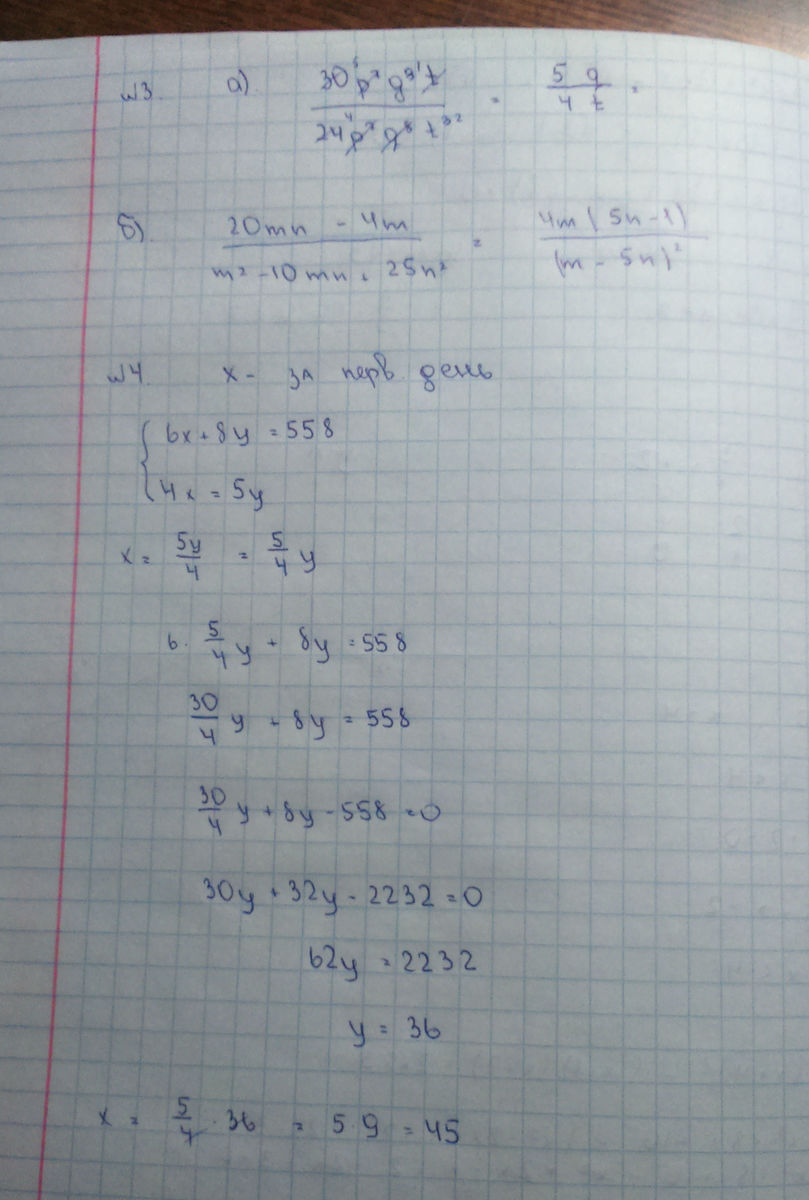 №3. а). 30p²q³t / 24p²q⁸t³² = 5q / 4t =
б). 20mn - 4m / m² - 10mn + 25n² = 4m(5n-1) / (m - 5n)²
№4. x - за перв. день
{ 6x + 8y = 558
4x = 5y
x = 5y/4 = 5/4 y
6 · 5/4 y + 8y = 558
30/4 y + 8y = 558
30/4 y + 8y - 558 = 0
30y + 32y - 2232 = 0
62y = 2232
y = 36
x = 5/4 · 36 = 5·9 = 45